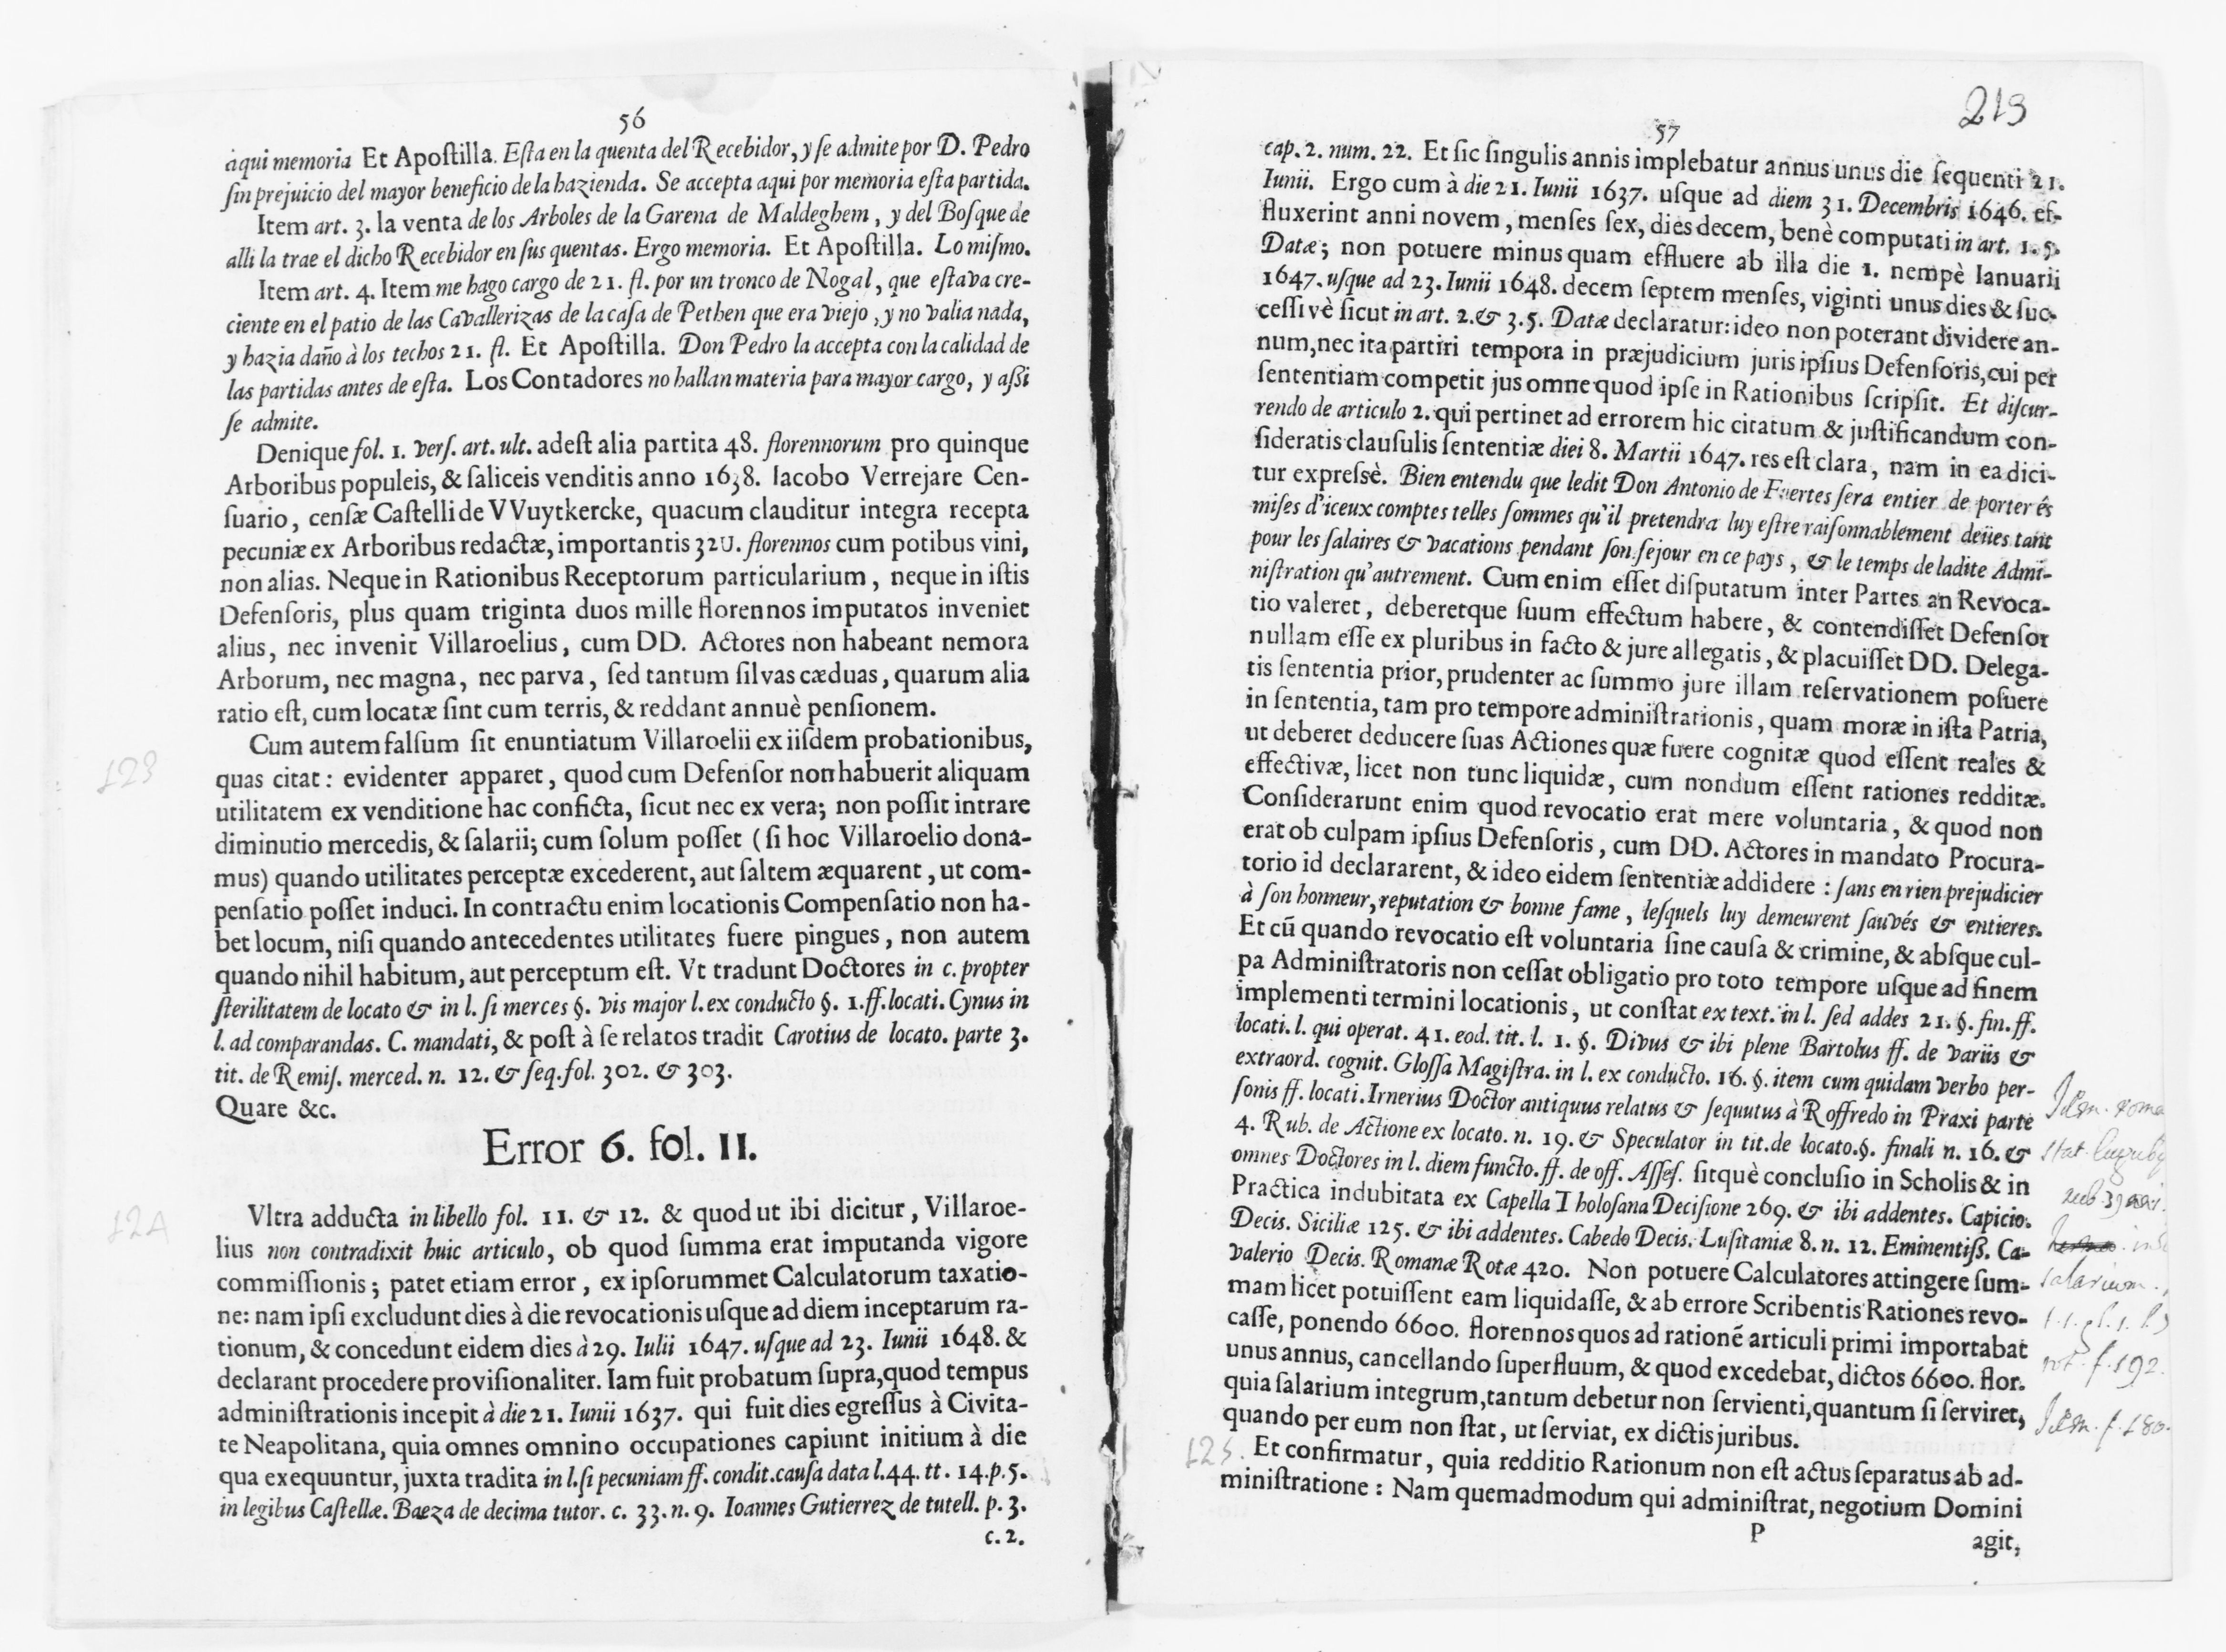 56
aqui memoria Et Apoſtilla. Eſta en la quenta del Recebidor, y ſe admite por D. Pedro
ſin prejuicio del mayor beneficio de la hazienda. Se accepta aqui por memoria eſta partida.
Item art. 3. la venta de los Arboles de la Garena de Maldeghem, y del Boſque de
alli la trae el dicho Recebidor en ſus quentas. Ergo memoria. Et Apoſtilla. Lo miſmo.
Item art. 4. Item me hago cargo de 21. fl. por un tronco de Nogal, que eſtava cre-
ciente en el patio de las Cavallerizas de la caſa de Pethen que era viejo, y no valia nada,
y hazia daño à los techos 21. fl. Et Apoſtilla. Don Pedro la accepta con la calidad de
las partidas antes de eſta. Los Contadores no hallan materia para mayor cargo, y aſsi
ſe admite.
Denique fol. 1. verſ. art. ult. adeſt alia partita 48. florennorum pro quinque
Arboribus populeis, & ſaliceis venditis anno 1638. Iacobo Verrejare Cen-
ſuario, cenſæ Caſtelli de VVuytkercke, quacum clauditur integra recepta
pecuniæ ex Arboribus redactæ, importantis 32U. florennos cum potibus vini,
non alias. Neque in Rationibus Receptorum particularium, neque in iſtis
Defenſoris, plus quam triginta duos mille florennos imputatos inveniet
alius, nec invenit Villaroelius, cum DD. Actores non habeant nemora
Arborum, nec magna, nec parva, ſed tantum ſilvas cæduas, quarum alia
ratio eſt, cum locatæ ſint cum terris, & reddant annuè penſionem.
123 Cum autem falſum ſit enuntiatum Villaroelii ex iiſdem probationibus,
quas citat: evidenter apparet, quod cum Defenſor non habuerit aliquam
utilitatem ex venditione hac conficta, ſicut nec ex vera; non poſſit intrare
diminutio mercedis, & ſalarii; cum ſolum poſſet (ſi hoc Villaroelio dona-
mus) quando utilitates perceptæ excederent, aut ſaltem æquarent, ut com-
penſatio poſſet induci. In contractu enim locationis Compenſatio non ha-
bet locum, niſi quando antecedentes utilitates fuere pingues, non autem
quando nihil habitum, aut perceptum eſt. Vt tradunt Doctores in c. propter
ſterilitatem de locato & in l. ſi merces §. vis major l. ex conducto §. 1. ff. locati. Cynus in
l. ad comparandas. C. mandati, & poſt à ſe relatos tradit Carotius de locato. parte 3.
tit. de Remiſ. merced. n. 12. & ſeq. fol. 302. & 303.
Quare &c.
Error 6. fol. 11.
124 Vltra adducta in libello fol. 11. & 12. & quod ut ibi dicitur, Villaroe-
lius non contradixit huic articulo, ob quod ſumma erat imputanda vigore
commiſſionis; patet etiam error, ex ipſorummet Calculatorum taxatio-
ne: nam ipſi excludunt dies à die revocationis uſque ad diem inceptarum ra-
tionum, & concedunt eidem dies à 29. Iulii 1647. uſque ad 23. Iunii 1648. &
declarant procedere proviſionaliter. Iam fuit probatum ſupra, quod tempus
adminiſtrationis incepit à die 21. Iunii 1637. qui fuit dies egreſſus à Civita-
te Neapolitana, quia omnes omnino occupationes capiunt initium à die
qua exequuntur, juxta tradita in l. ſi pecuniam ff. condit. cauſa data l. 44. tt. 14. p. 5.
in legibus Caſtellæ. Baeza de decima tutor. c. 33. n. 9. Ioannes Gutierrez de tutell. p. 3.
c. 2.
213
57
cap. 2. num. 22. Et ſic ſingulis annis implebatur annus unus die ſequenti 21.
Iunii. Ergo cum à die 21. Iunii 1637. uſque ad diem 31. Decembris 1646. ef-
fluxerint anni novem, menſes ſex, dies decem, benè computati in art. 1. 5.
Datæ; non potuere minus quam effluere ab illa die 1. nempè Ianuarii
1647. uſque ad 23. Iunii 1648. decem ſeptem menſes, viginti unus dies & ſuc-
ceſſivè ſicut in art. 2. & 3. 5. Datæ declaratur: ideo non poterant dividere an-
num, nec ita partiri tempora in præjudicium juris ipſius Defenſoris, cui per
ſententiam competit jus omne quod ipſe in Rationibus ſcripſit. Et diſcur-
rendo de articulo 2. qui pertinet ad errorem hic citatum & juſtificandum con-
ſideratis clauſulis ſententiæ diei 8. Martii 1647. res eſt clara, nam in ea dici-
tur expreſsè. Bien entendu que ledit Don Antonio de Fuertes ſera entier de porter és
miſes d'iceux comptes telles ſommes qu'il pretendra luy eſtre raiſonnablement deües tant
pour les ſalaires & vacations pendant ſon ſejour en ce pays, & le temps de ladite Admi-
niſtration qu'autrement. Cum enim eſſet diſputatum inter Partes an Revoca-
tio valeret, deberetque ſuum effectum habere, & contendiſſet Defenſor
nullam eſſe ex pluribus in facto & jure allegatis, & placuiſſet DD. Delega-
tis ſententia prior, prudenter ac ſummo jure illam reſervationem poſuere
in ſententia, tam pro tempore adminiſtrationis, quam moræ in iſta Patria,
ut deberet deducere ſuas Actiones quæ fuere cognitæ quod eſſent reales &
effectivæ, licet non tunc liquidæ, cum nondum eſſent rationes redditæ.
Conſiderarunt enim quod revocatio erat mere voluntaria, & quod non
erat ob culpam ipſius Defenſoris, cum DD. Actores in mandato Procura-
torio id declararent, & ideo eidem ſententiæ addidere: ſans en rien prejudicier
à ſon honneur, reputation & bonne fame, leſquels luy demeurent ſauvés & entieres.
Et cũ quando revocatio eſt voluntaria ſine cauſa & crimine, & abſque cul-
pa Adminiſtratoris non ceſſat obligatio pro toto tempore uſque ad finem
implementi termini locationis, ut conſtat ex text. in l. ſed addes 21. §. fin. ff.
locati. l. qui operat. 41. eod. tit. l. 1. §. Divus & ibi plene Bartolus ff. de variis &
extraord. cognit. Gloſſa Magiſtra. in l. ex conducto. 16. §. item cum quidam verbo per-
ſonis ff. locati. Irnerius Doctor antiquus relatus & ſequutus à Roffredo in Praxi parte
4. Rub. de Actione ex locato. n. 19. & Speculator in tit. de locato. §. finali n. 16. &
omnes Doctores in l. diem functo. ff. de off. Aſſeſ. ſitquè concluſio in Scholis & in
Practica indubitata ex Capella Tholoſana Deciſione 269. & ibi addentes. Capicio.
Decis. Siciliæ 125. & ibi addentes. Cabedo Decis. Luſitaniæ 8. n. 12. Eminentiſſ. Ca-
valerio Decis. Romanæ Rotæ 420. Non potuere Calculatores attingere ſum-
mam licet potuiſſent eam liquidaſſe, & ab errore Scribentis Rationes revo-
caſſe, ponendo 6600. florennos quos ad rationẽ articuli primi importabat
unus annus, cancellando ſuperfluum, & quod excedebat, dictos 6600. flor.
quia ſalarium integrum, tantum debetur non ſervienti, quantum ſi ſerviret,
quando per eum non ſtat, ut ſerviat, ex dictis juribus.
125. Et confirmatur, quia redditio Rationum non eſt actus ſeparatus ab ad-
miniſtratione: Nam quemadmodum qui adminiſtrat, negotium Domini
P
agit,
Idem.
salarium.
f. 192.
Idem. f. 180.